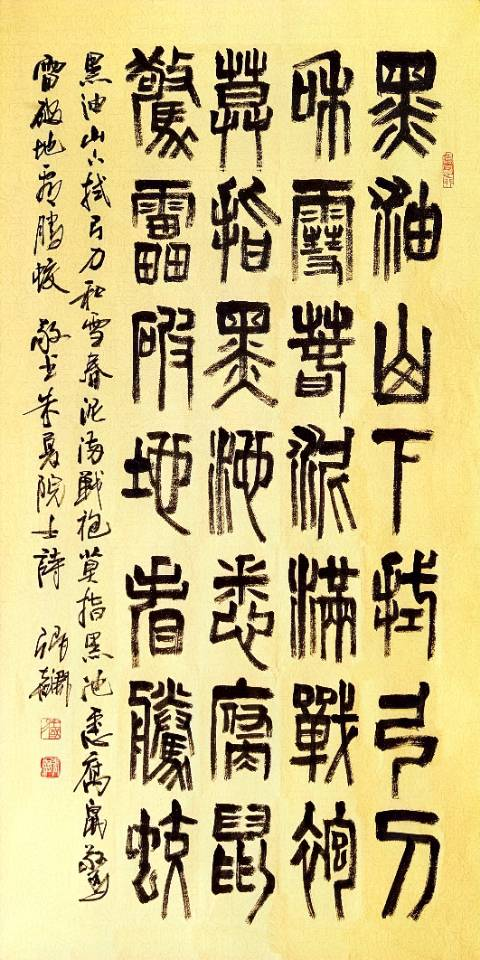 黑油山下拭弓刀
和雪春泥滿戰袍
莫指黑池悉腐鼠
驚雷破地看騰蛟
黑油山下拭弓刀和雪春泥满戰袍莫指黑池悉腐鼠驚
雷破地看騰蛟 敬书朱夏院士詩